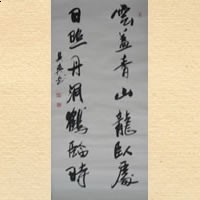 雲蓋青山龍臥處
日照丹洞鶴臨時